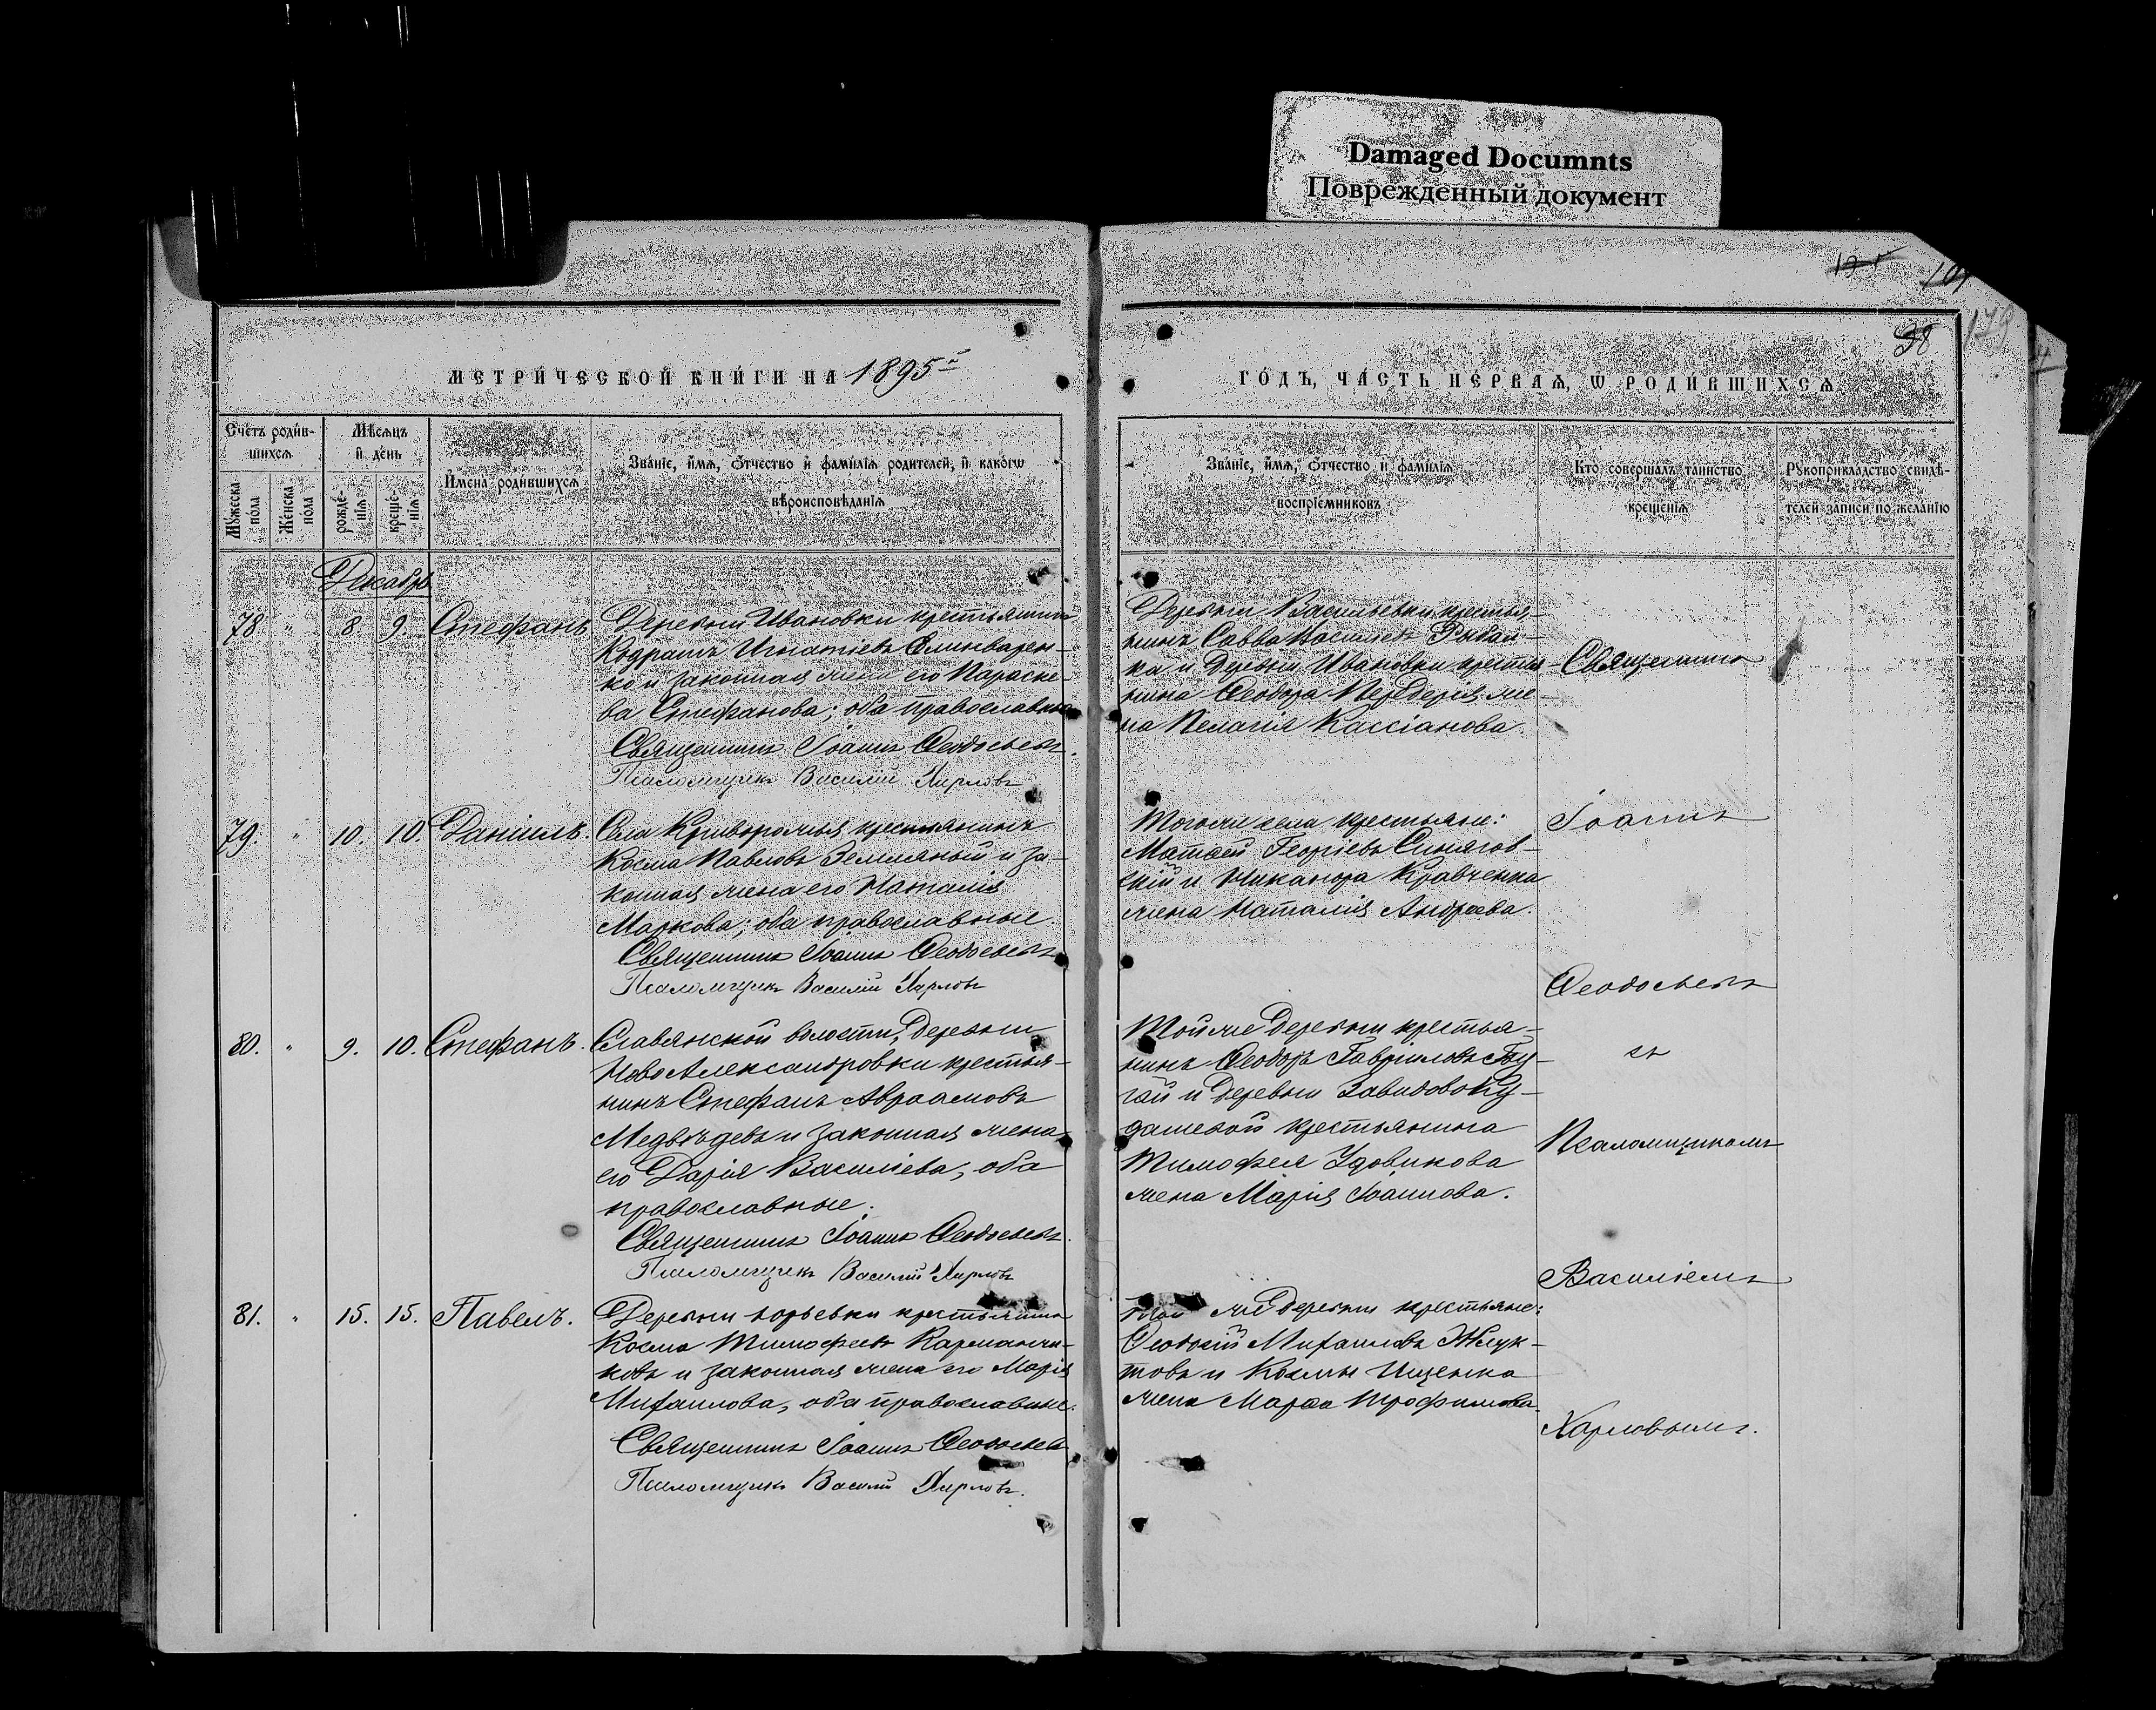 Damaged Documnts
Поврежденный документ
38
МЕТРИ́ЧЕСКОЙ КНИ́ГИ НА 1895й
ГО́ДЪ, ЧА́СТЬ ПЕ́РВАѦ, Ѡ РОДИ́ВШИХСѦ
Сче́тъ роди́в-
шихсѧ
Мꙋ́жеска по́ла
Же́нска по́ла
Мѣ́сѧцъ
и҆ де́нь
рожде́-
нїѧ
креще́-
нїѧ
И҆мена̀ роди́вшихсѧ
Зва́нїе, и҆́мѧ, ѻ҆́тчество и҆ фамилїѧ родителей, и҆ како́гѡ
вѣроисповѣданїѧ
Зва́нїе, и҆́мѧ, ѻ҆́тчество и҆ фамилїѧ
воспрїемниковъ
Кто̀ совершалъ таинство
крещенїѧ
Рꙋкоприкладство свидѣ-
телей записи по желанїю
Декабрь
78 " 8. 9. Стефанъ
Деревни Ивановки крестьянинъ
Игнатіевъ
ко и законная жена его Параске-
ва Стефанова; оба православные
Священникъ Іоаннъ Ѳеодосьевъ.
Псаломщикъ Василій Харловъ
Деревни Васильевки крестья-
нинъ Савва Рыбал-
ка и деревни Ивановки крестья-
нина Ѳеодора жe-
на Пелагія Кассіанова.
79. " 10. 10. Даніилъ.
Села Криворожья крестьянинъ
Косма Павловъ Земляный и за-
конная жена его Наталія
Маркова; оба православные.
Священникъ Іоаннъ Ѳеодосьевъ
Псаломщикъ Василій Харловъ
Тогоже села крестьяне:
Матвей Георгіевъ Синягов-
скій и Никанора Кравченка
жена Наталія Андреева.
80. " 9. 10. Стефанъ.
Славянской волости, деревни
НовоАлександровки крестья-
нинъ Стефанъ Авраамовъ
Медвѣдевъ и законная жена
его Дарія Василіева, оба
православные.
Священникъ Іоаннъ Ѳеодосьевъ.
Псаломщикъ Василій Харловъ
Тойже деревни крестья-
нинъ Ѳеодоръ Гавріиловъ Бу-
гай и деревни ЗавидовоКу-
дашевой крестьянина
Тимофея Удовикова
жена Марія Іоаннова.
81. " 15. 15. Павелъ.
Деревни Юрьевки крестьянинъ
Косма Тимофеевъ Карманчи-
ковъ и законная жена его Марія
Михаилова, оба православные.
Священникъ Іоаннъ Ѳеодосьевъ
Псаломщикъ Василій Харловъ.
Той же деревни крестьяне:
Михаиловъ Жлук-
товъ и Космы Ищенка
жена Марѳа Трофимова.
Священникъ
Іоаннъ
Ѳеодосьевъ
съ
Псаломщикомъ
Василіемъ
Харловымъ.